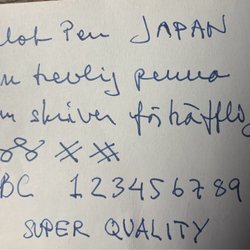 lot Pen JAPAN
n trevlig penna
m skriver förträfflig
BC 1 2 3 4 5 6 7 8 9
SUPER QUALITY